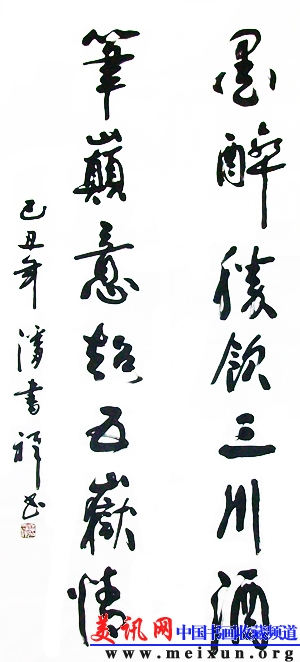 墨醉勝飲三川酒
筆巔意超五嶽情
己丑年 潘書祥書
美讯网 中国书画收藏频道
www.meixun.org